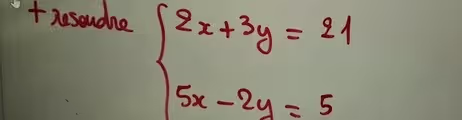 + resoudre { 2x + 3y = 21
5x - 2y = 5